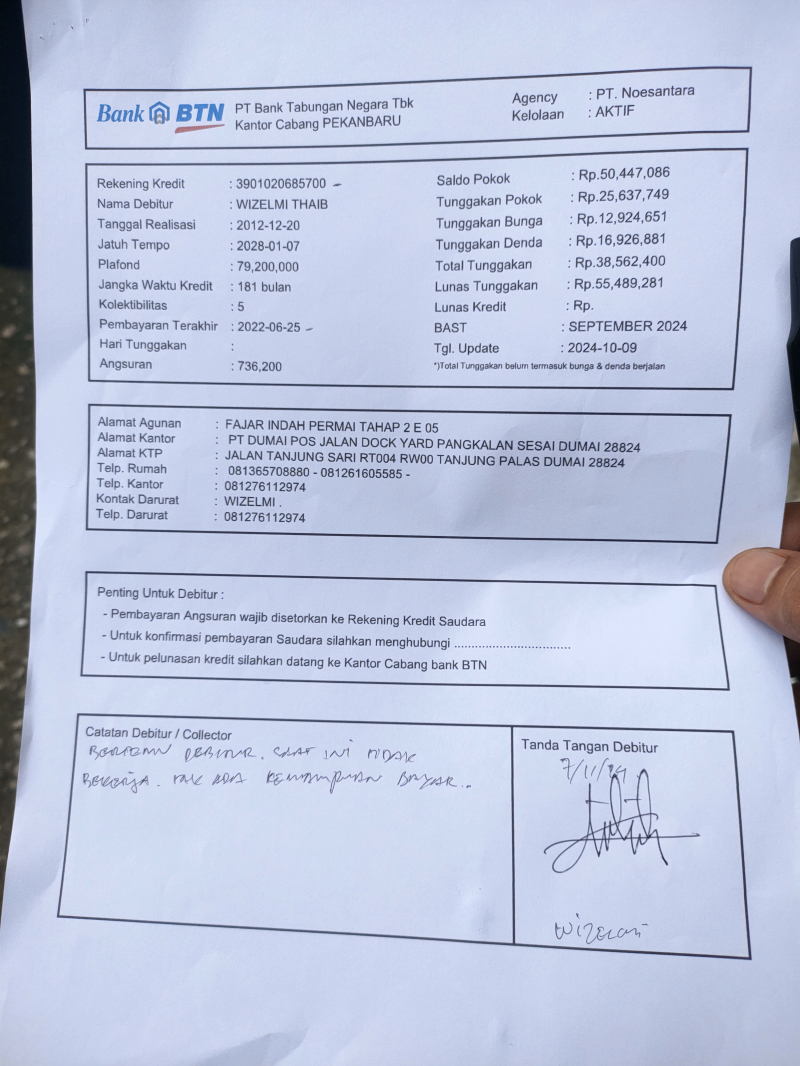 Bank BTN
PT Bank Tabungan Negara Tbk
Kantor Cabang PEKANBARU
Agency : PT. Noesantara
Kelolaan : AKTIF
Rekening Kredit : 3901020685700 -
Nama Debitur : WIZELMI THAIB
Tanggal Realisasi : 2012-12-20
Jatuh Tempo : 2028-01-07
Plafond : 79,200,000
Jangka Waktu Kredit : 181 bulan
Kolektibilitas : 5
Pembayaran Terakhir : 2022-06-25 -
Hari Tunggakan :
Angsuran : 736,200
Saldo Pokok : Rp.50,447,086
Tunggakan Pokok : Rp.25,637,749
Tunggakan Bunga : Rp.12,924,651
Tunggakan Denda : Rp.16,926,881
Total Tunggakan : Rp.38,562,400
Lunas Tunggakan : Rp.55,489,281
Lunas Kredit : Rp.
BAST : SEPTEMBER 2024
Tgl. Update : 2024-10-09
*)Total Tunggakan belum termasuk bunga & denda berjalan
Alamat Agunan : FAJAR INDAH PERMAI TAHAP 2 E 05
Alamat Kantor : PT DUMAI POS JALAN DOCK YARD PANGKALAN SESAI DUMAI 28824
Alamat KTP : JALAN TANJUNG SARI RT004 RW00 TANJUNG PALAS DUMAI 28824
Telp. Rumah : 081365708880 - 081261605585 -
Telp. Kantor : 081276112974
Kontak Darurat : WIZELMI .
Telp. Darurat : 081276112974
Penting Untuk Debitur :
- Pembayaran Angsuran wajib disetorkan ke Rekening Kredit Saudara
- Untuk konfirmasi pembayaran Saudara silahkan menghubungi ..................................
- Untuk pelunasan kredit silahkan datang ke Kantor Cabang bank BTN
Catatan Debitur / Collector
DEBITUR. SAAT INI TIDAK
BEKERJA. TAK ADA KEMAMPUAN BAYAR...
Tanda Tangan Debitur
7/11/24
Wizelmi